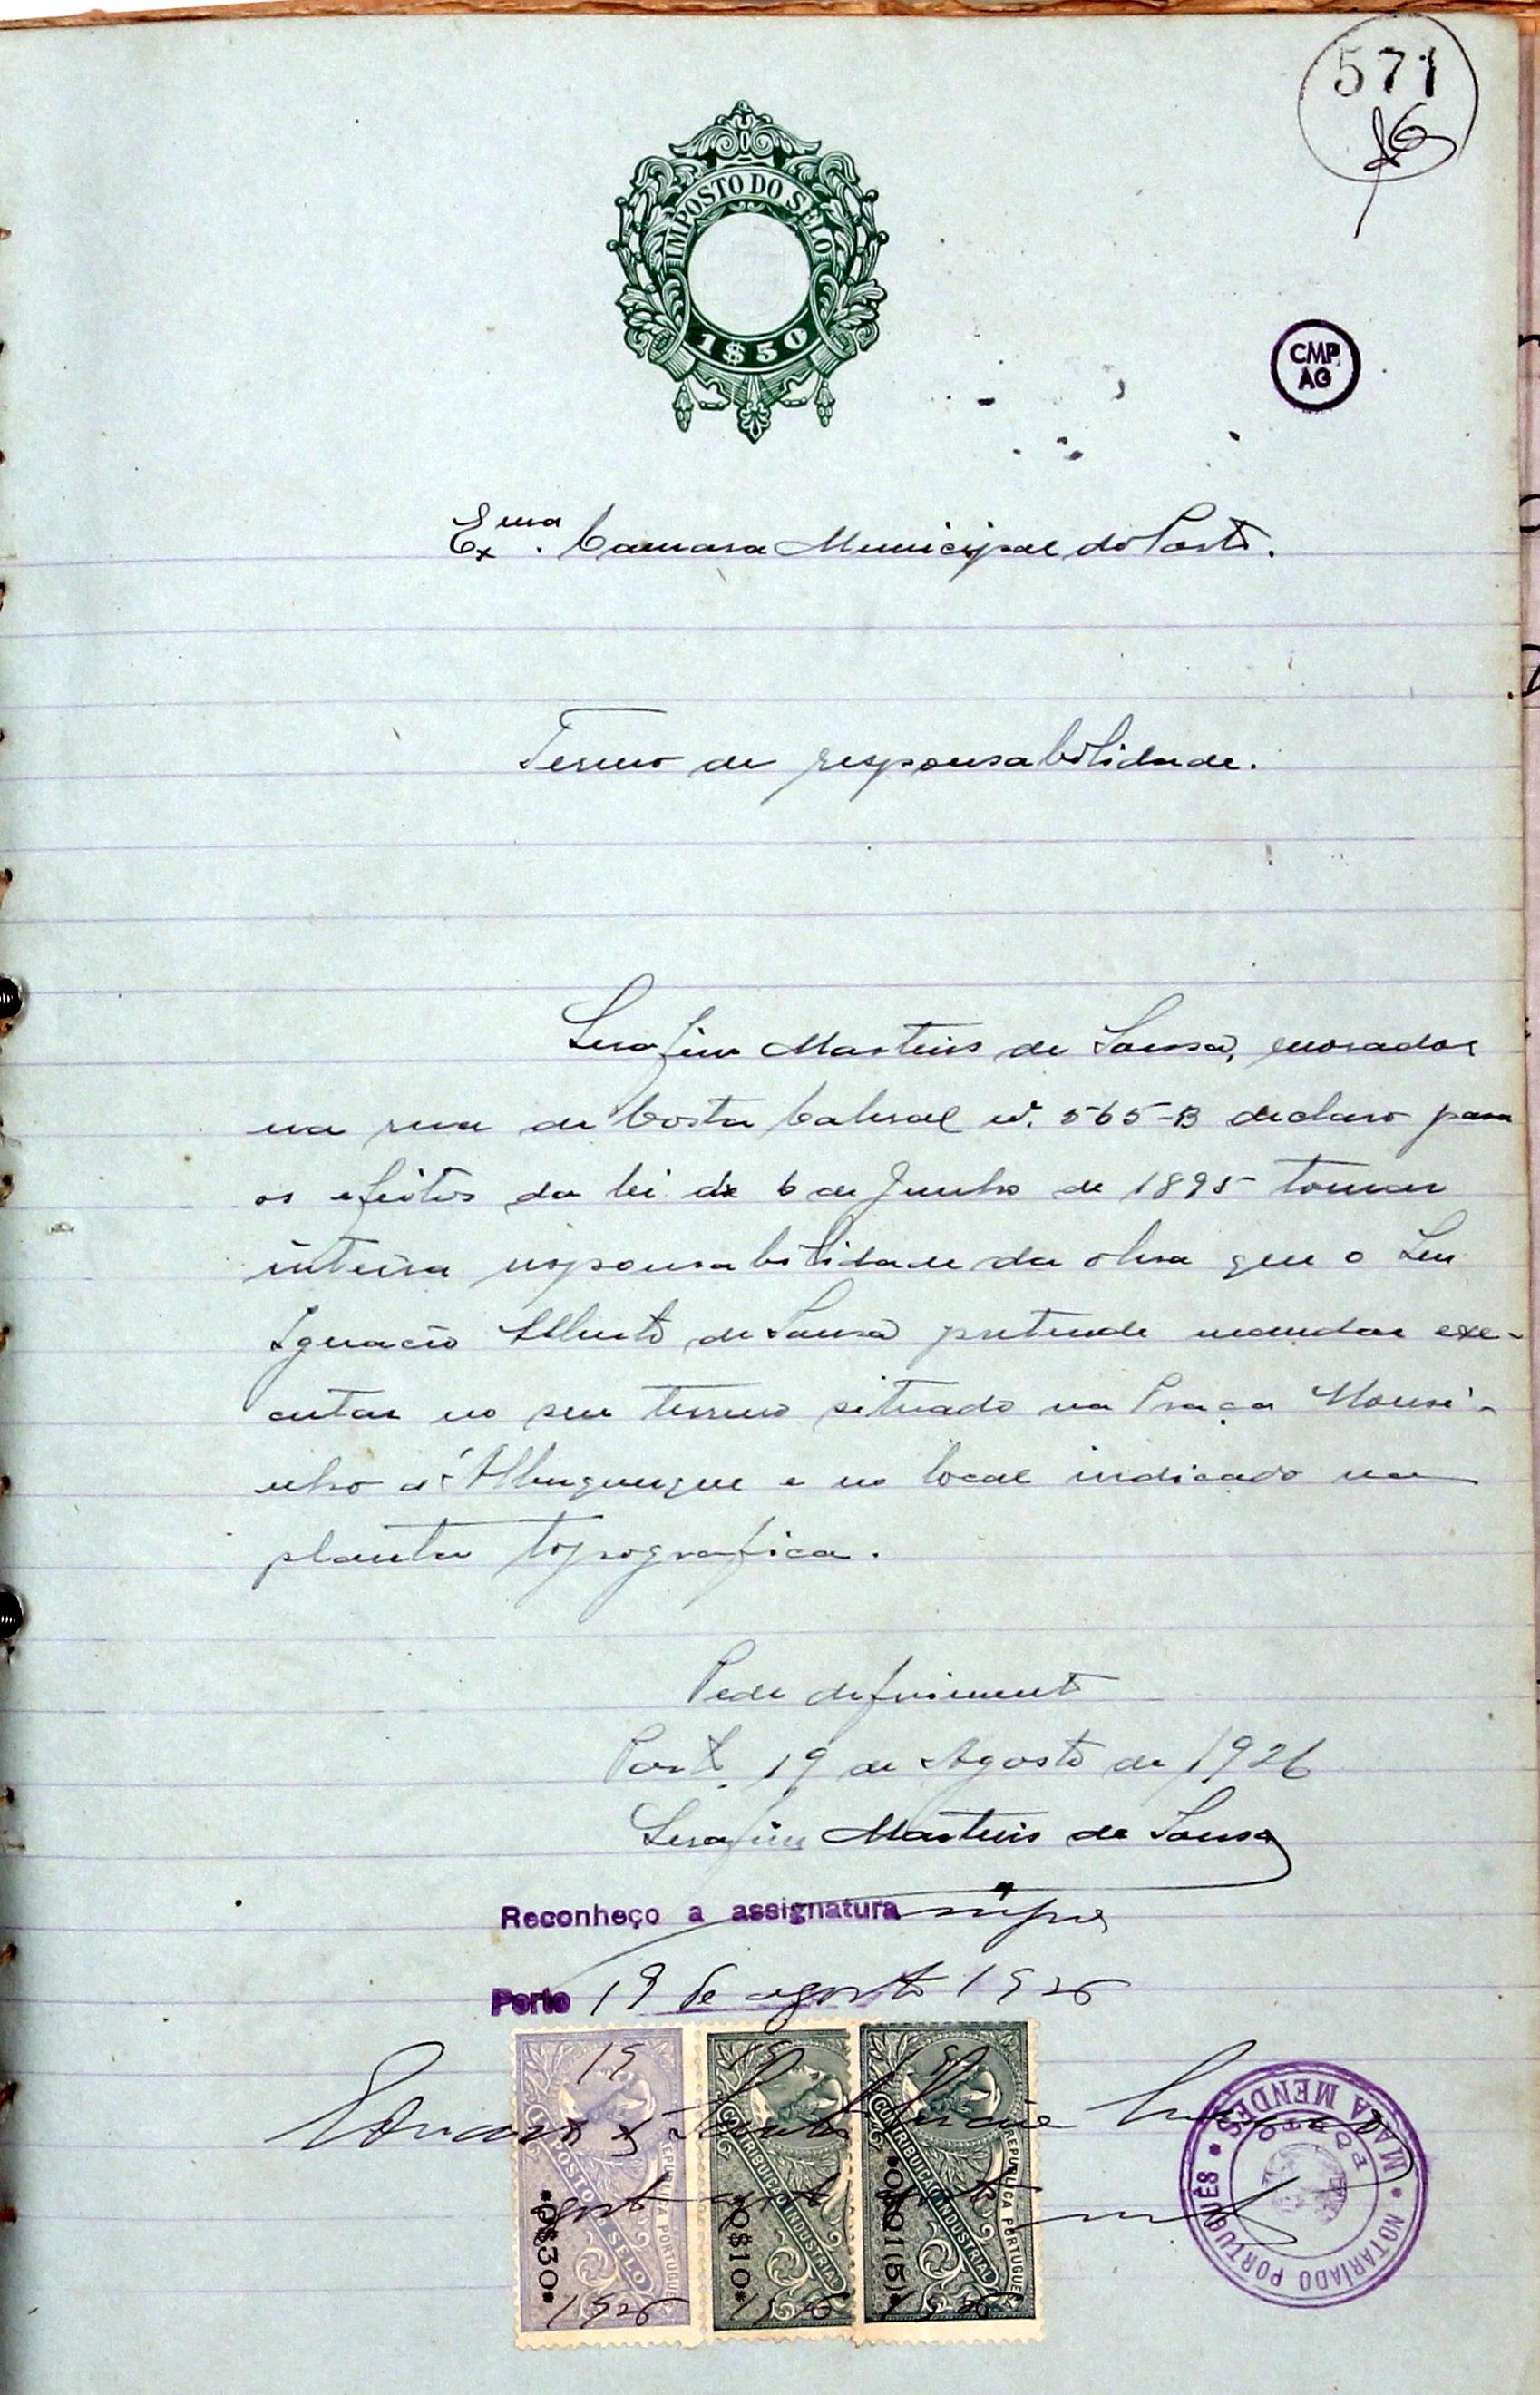 571
IMPOSTO DO SELO
1$50
CMP
AG
Exma. Camara Municipal do Porto.
Termo de responsabilidade.
Serafim Martins de Sousa, morador
na rua de Costa Cabral nº. 565-B declaro para
os efeitos da lei de 6 de Junho de 1895 tomar
inteira responsabilidade da obra que o Snr
Ignacio Alberto de Sousa pretende mandar exe-
cutar no seu terreno situado na Praça Mousi-
nho d'Albuquerque e no local indicado na
planta topografica.
Pede deferimento
Porto, 19 de Agosto de 1926
Serafim Martins de Sousa
Reconheço a assignatura supra
Porto 19 de agosto 1926
19
IMPOSTO DO SELO
REPUBLICA PORTUGUESA
*0$30*
1926
CONTRIBUIÇÃO INDUSTRIAL
*0$10*
1926
CONTRIBUIÇÃO INDUSTRIAL
REPUBLICA PORTUGUESA
*0$01(5)*
1926
NOTARIADO PORTUGUÊS
MAIA MENDES
PORTO